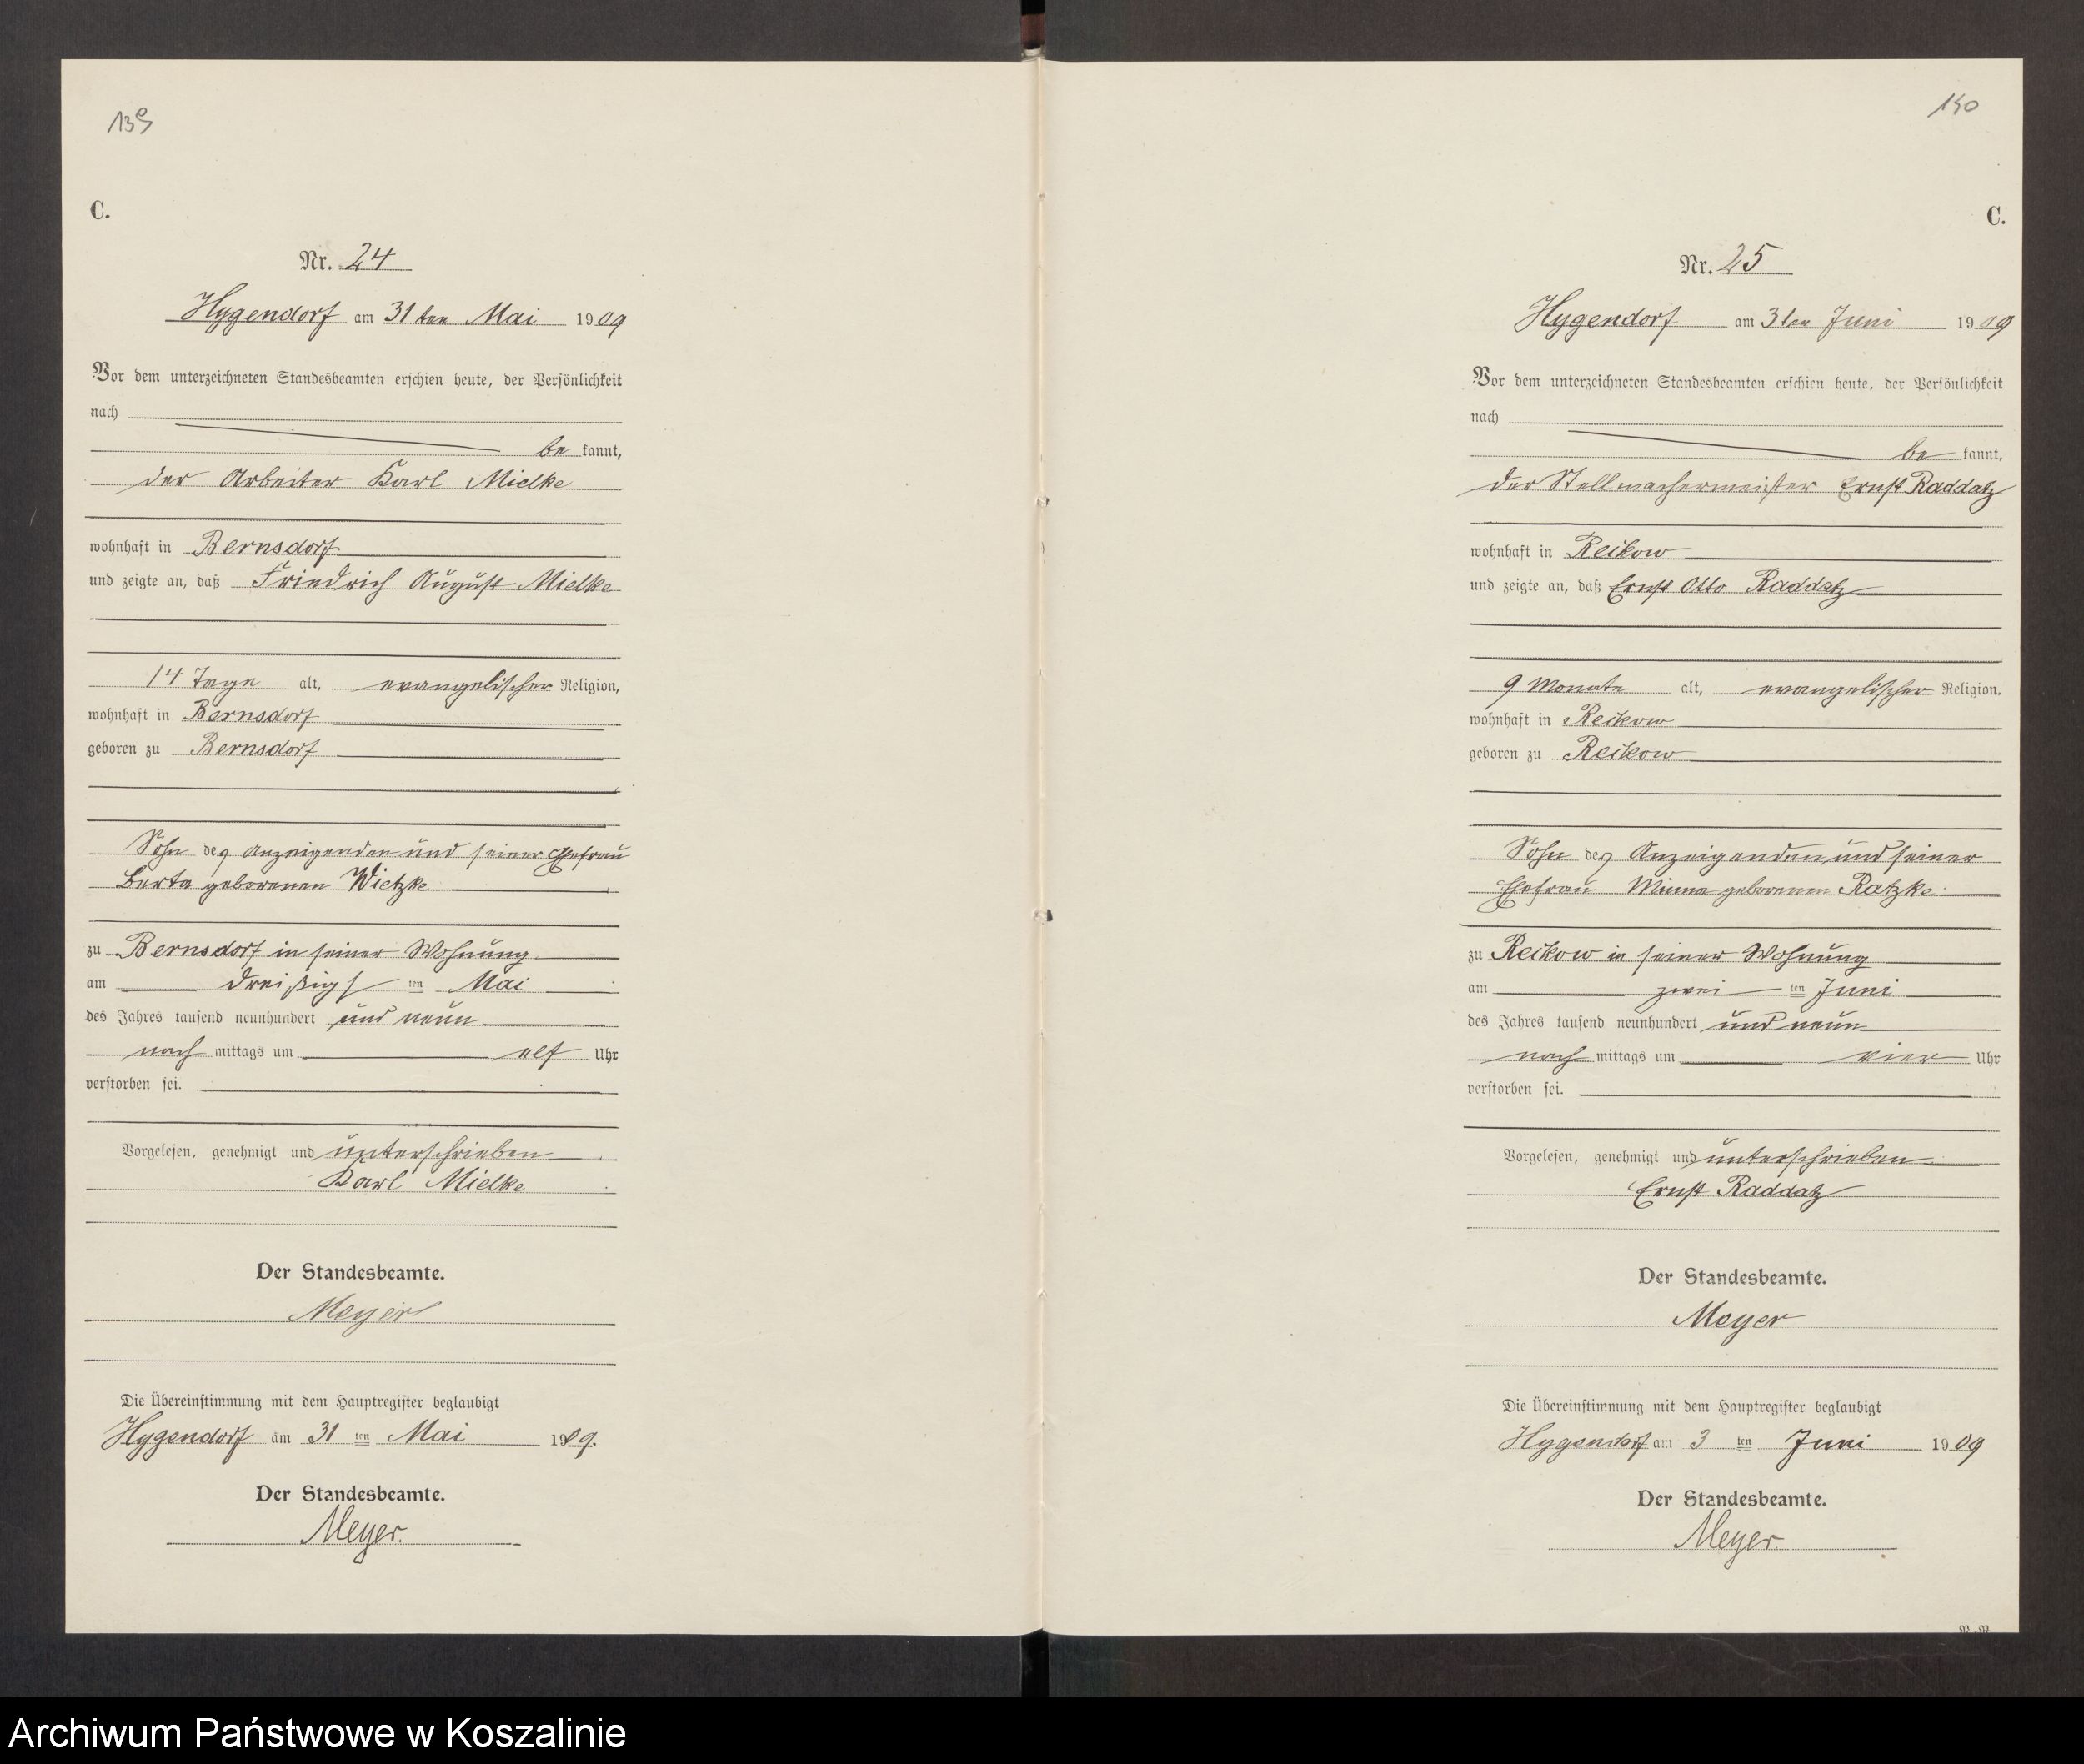 139
C.
Nr. 24
Hygendorf am 31ten Mai 1909
Vor dem unterzeichneten Standesbeamten erschien heute, der Persönlichkeit
nach
be kannt,
der Arbeiter Karl Mielke
wohnhaft in Bernsdorf
und zeigte an, daß Friedrich August Mielke
14 Tage alt, evangelischer Religion,
wohnhaft in Bernsdorf
geboren zu Bernsdorf
Sohn des Anzeigenden und seiner Ehefrau
Berta geborenen Wietzke
zu Bernsdorf in seiner Wohnung
am dreißigs ten Mai
des Jahres tausend neunhundert und neun
nach mittags um elf Uhr
verstorben sei.
Vorgelesen, genehmigt und unterschrieben
Karl Mielke
Der Standesbeamte.
Meyer
Die Übereinstimmung mit dem Hauptregister beglaubigt
Hygendorf am 31 ten Mai 1909.
Der Standesbeamte.
Meyer.
140
C.
Nr. 25
Hygendorf am 3ten Juni 1909
Vor dem unterzeichneten Standesbeamten erschien heute, der Persönlichkeit
nach
be kannt,
der Stellmachermeister Ernst Raddatz
wohnhaft in Reikow
und zeigte an, daß Ernst Otto Raddatz
9 Monate alt, evangelischer Religion,
wohnhaft in Reikow
geboren zu Reikow
Sohn des Anzeigenden und seiner
Ehefrau Minna geborenen Ratzke
zu Reikow in seiner Wohnung
am zwei ten Juni
des Jahres tausend neunhundert und neun
nach mittags um vier Uhr
verstorben sei.
Vorgelesen, genehmigt und unterschrieben
Ernst Raddatz
Der Standesbeamte.
Meyer
Die Übereinstimmung mit dem Hauptregister beglaubigt
Hygendorf am 3 ten Juni 1909
Der Standesbeamte.
Meyer.
Archiwum Państwowe w Koszalinie